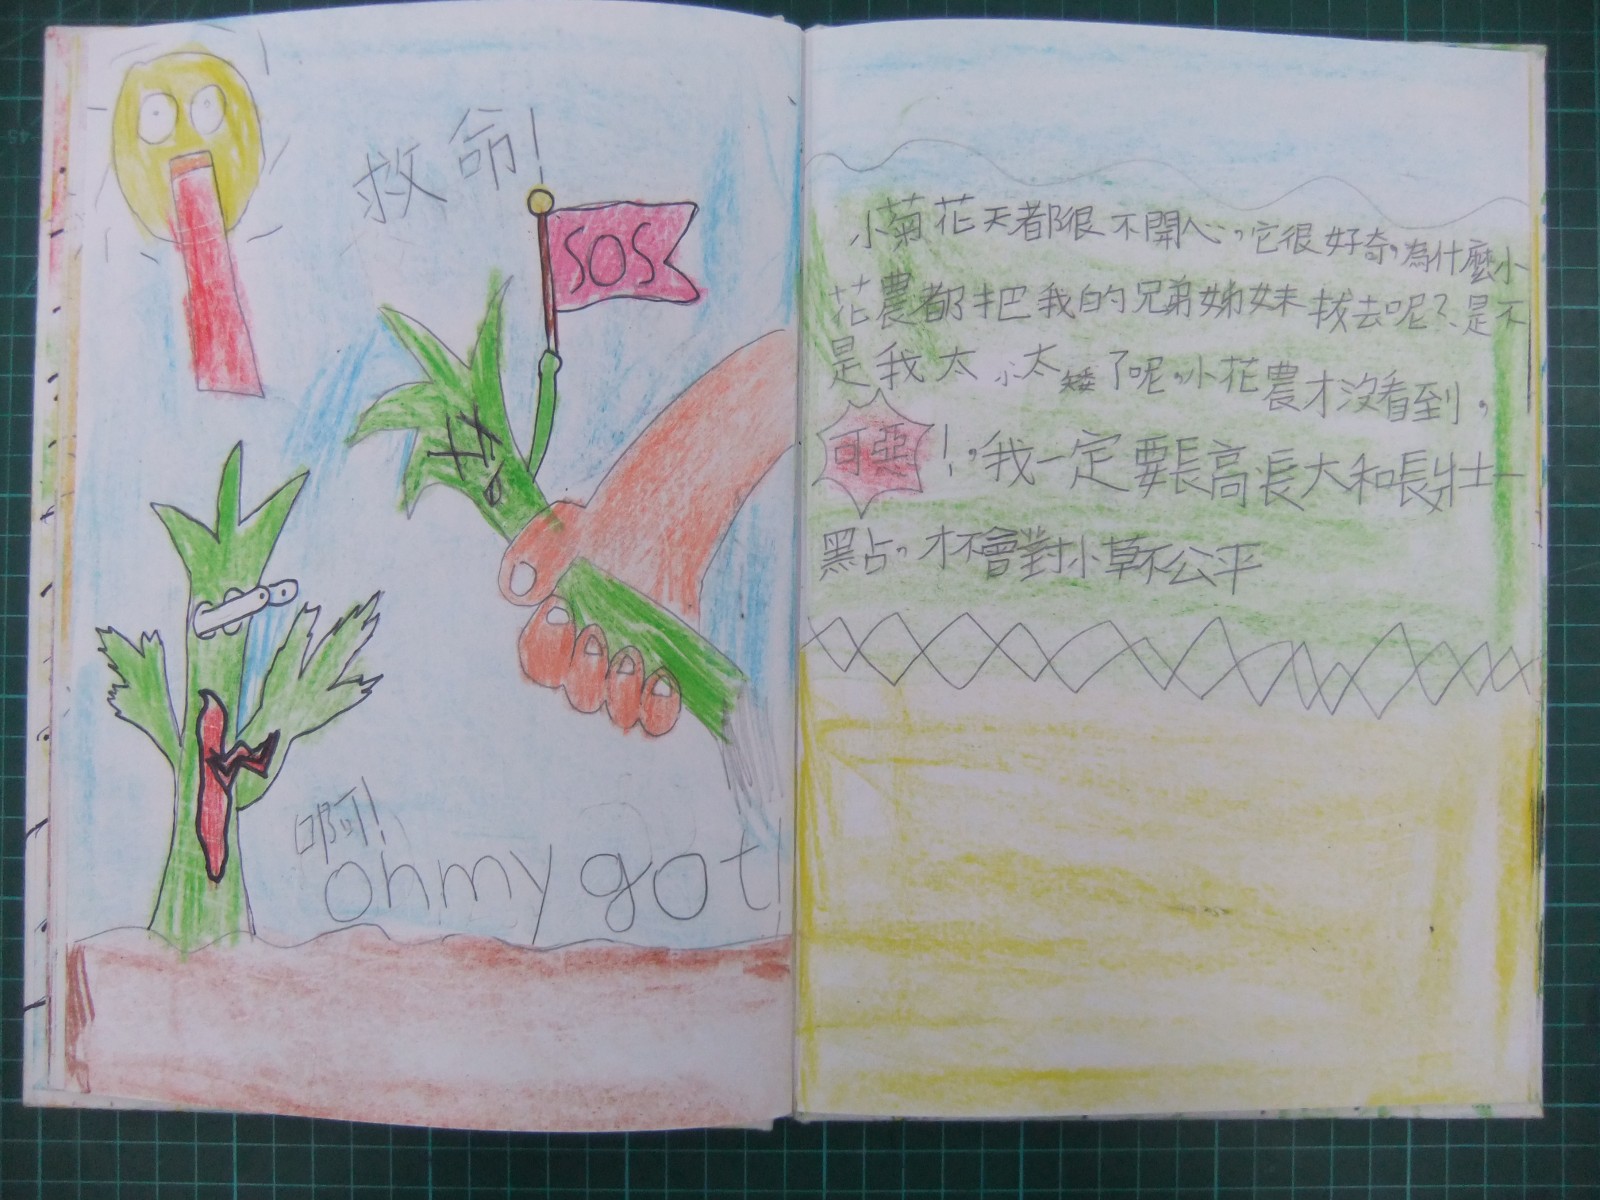 救命!
SOS
啊!
oh my got!
小菊花天都很不開心,它很好奇,為什麼小
花農都把我的兄弟姊妹拔去呢?是不
是我太小太矮了呢,小花農才沒看到,
可惡!,我一定要長高長大和長壯一
點,才不會對小草不公平